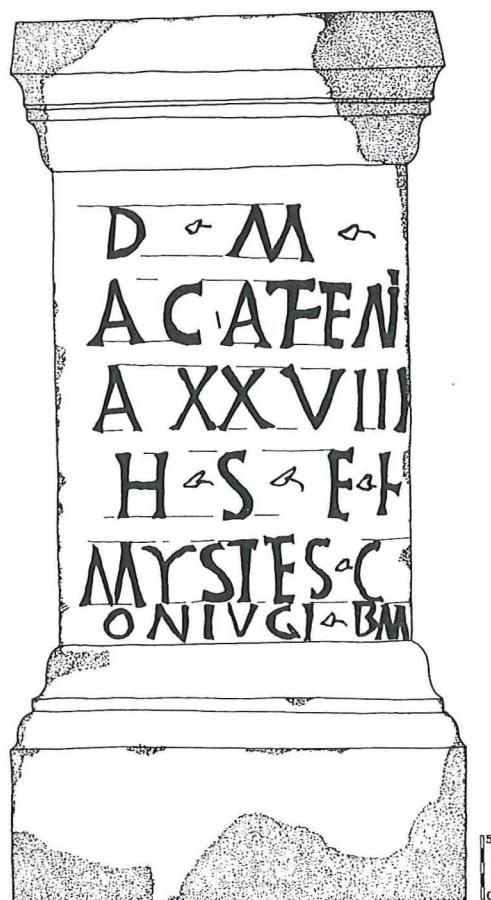 D M
ACATHENI
A XXVIII
H S E
MYSTES C
ONIVGI BM
5
0